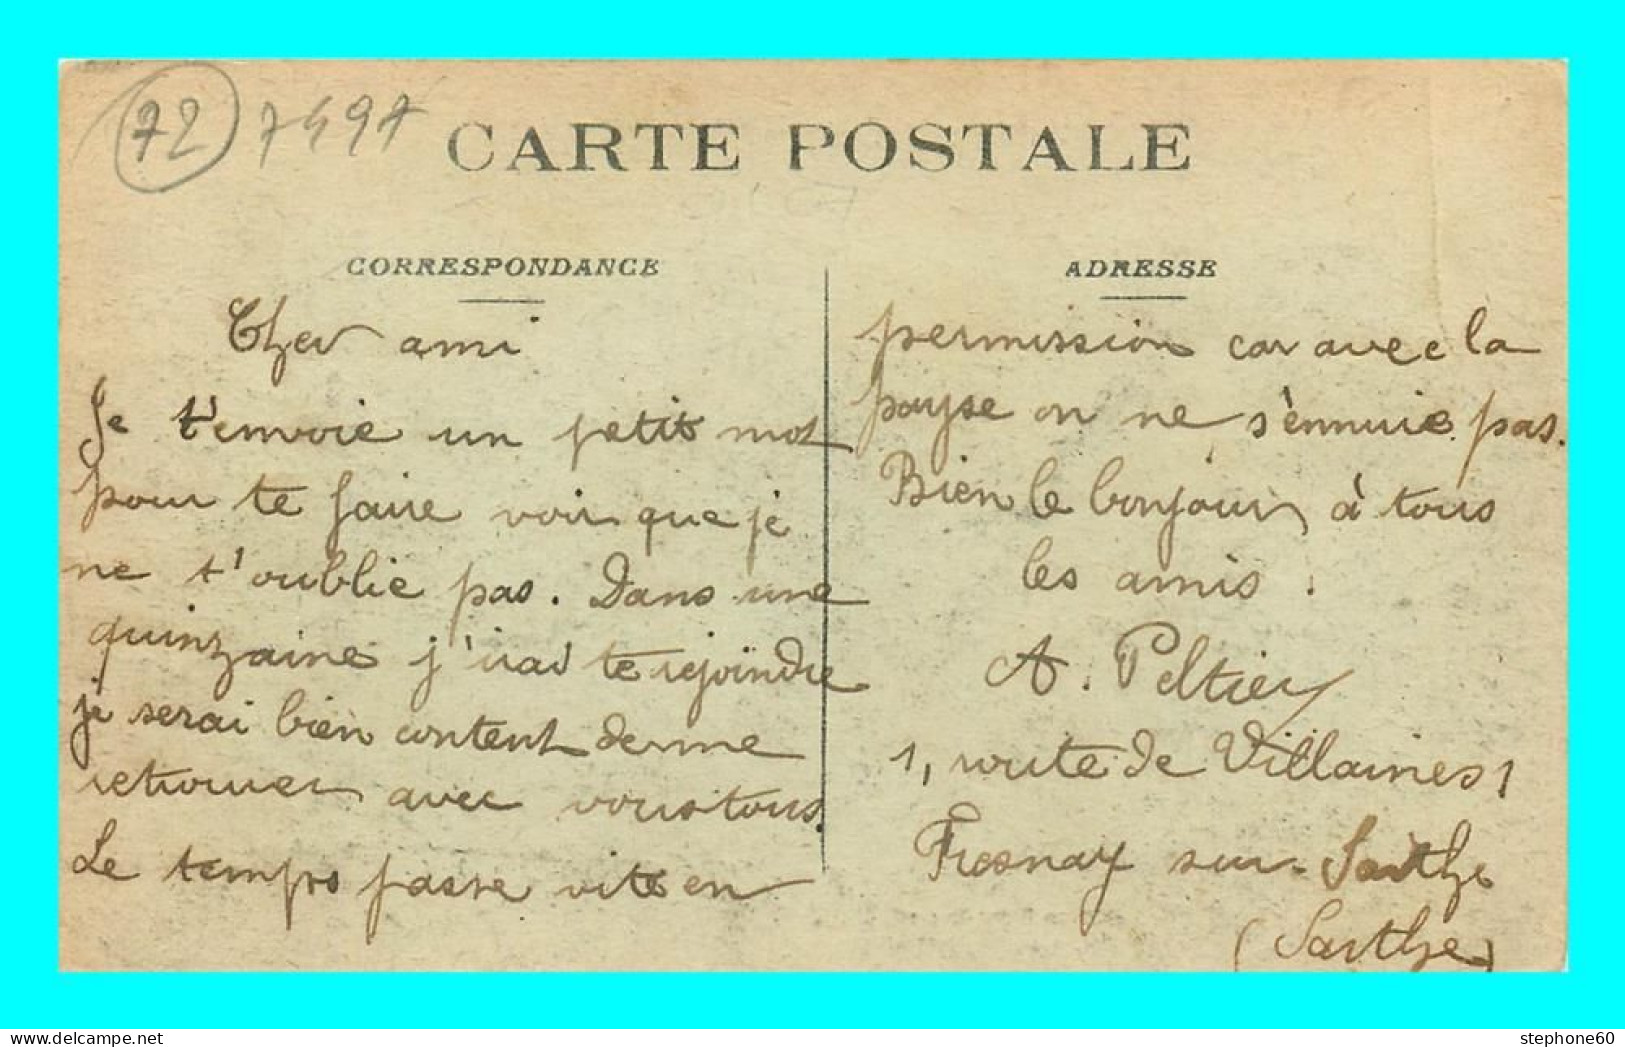 72 7497
CARTE POSTALE
CORRESPONDANCE
Cher ami
Je t'envoie un petit mot
pour te faire voir que je
ne t'oublie pas. Dans une
quinzaine j'irai te rejoindre
je serai bien content de me
retrouver avec vous tous.
Le temps passe vite en
ADRESSE
permission car avec la
payse on ne s'ennuie pas.
Bien le bonjour à tous
les amis.
A. Peltier
1, route de Villaines 1
Fresnay sur-Sarthe
(Sarthe)
stephone60